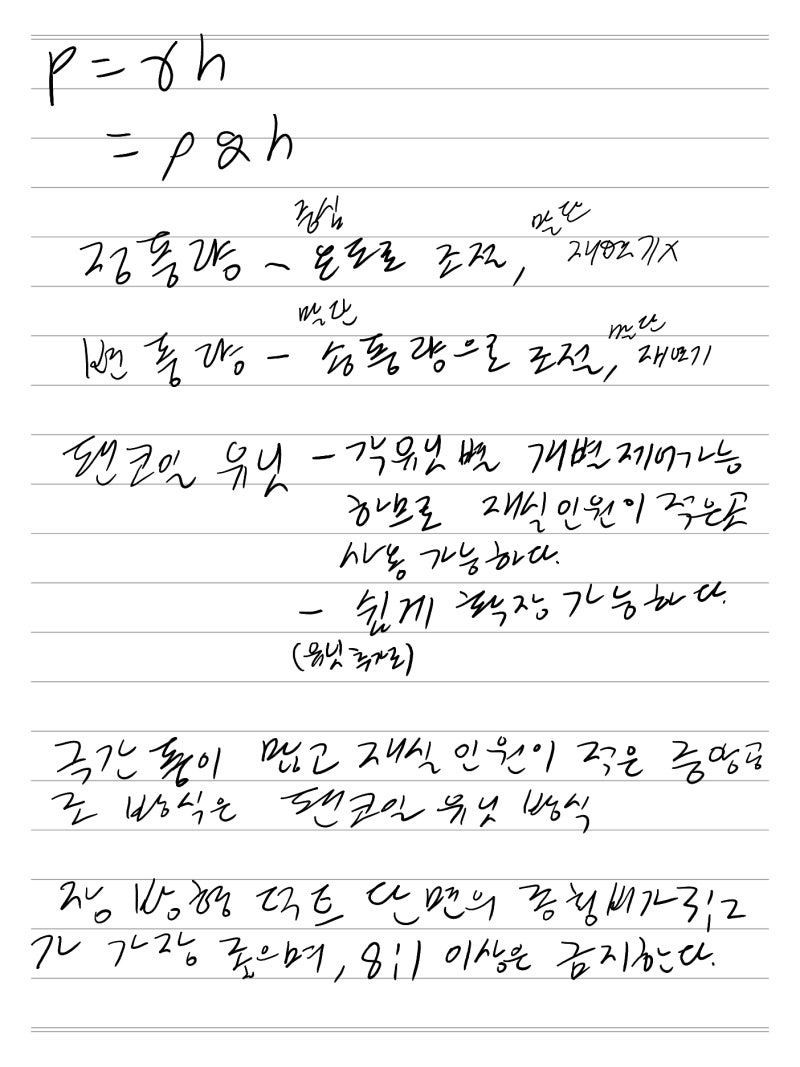 P = γh
= ρgh
중심 말단
정풍량 ~ 온도로 조절, 재열기X
말단 말단
변풍량 - 송풍량으로 조절, 재열기
팬코일 유닛 - 각유닛별 개별제어가능
하므로 재실인원이 적은곳
사용 가능하다.
- 쉽게 확장가능하다.
(유닛추가로)
국간통이 많고 재실인원이 적은 중앙공
조 방식은 팬코일 유닛 방식
장방형 덕트 단면의 종횡비가 3:2
가 가장 좋으며, 8:1 이상은 금지한다.